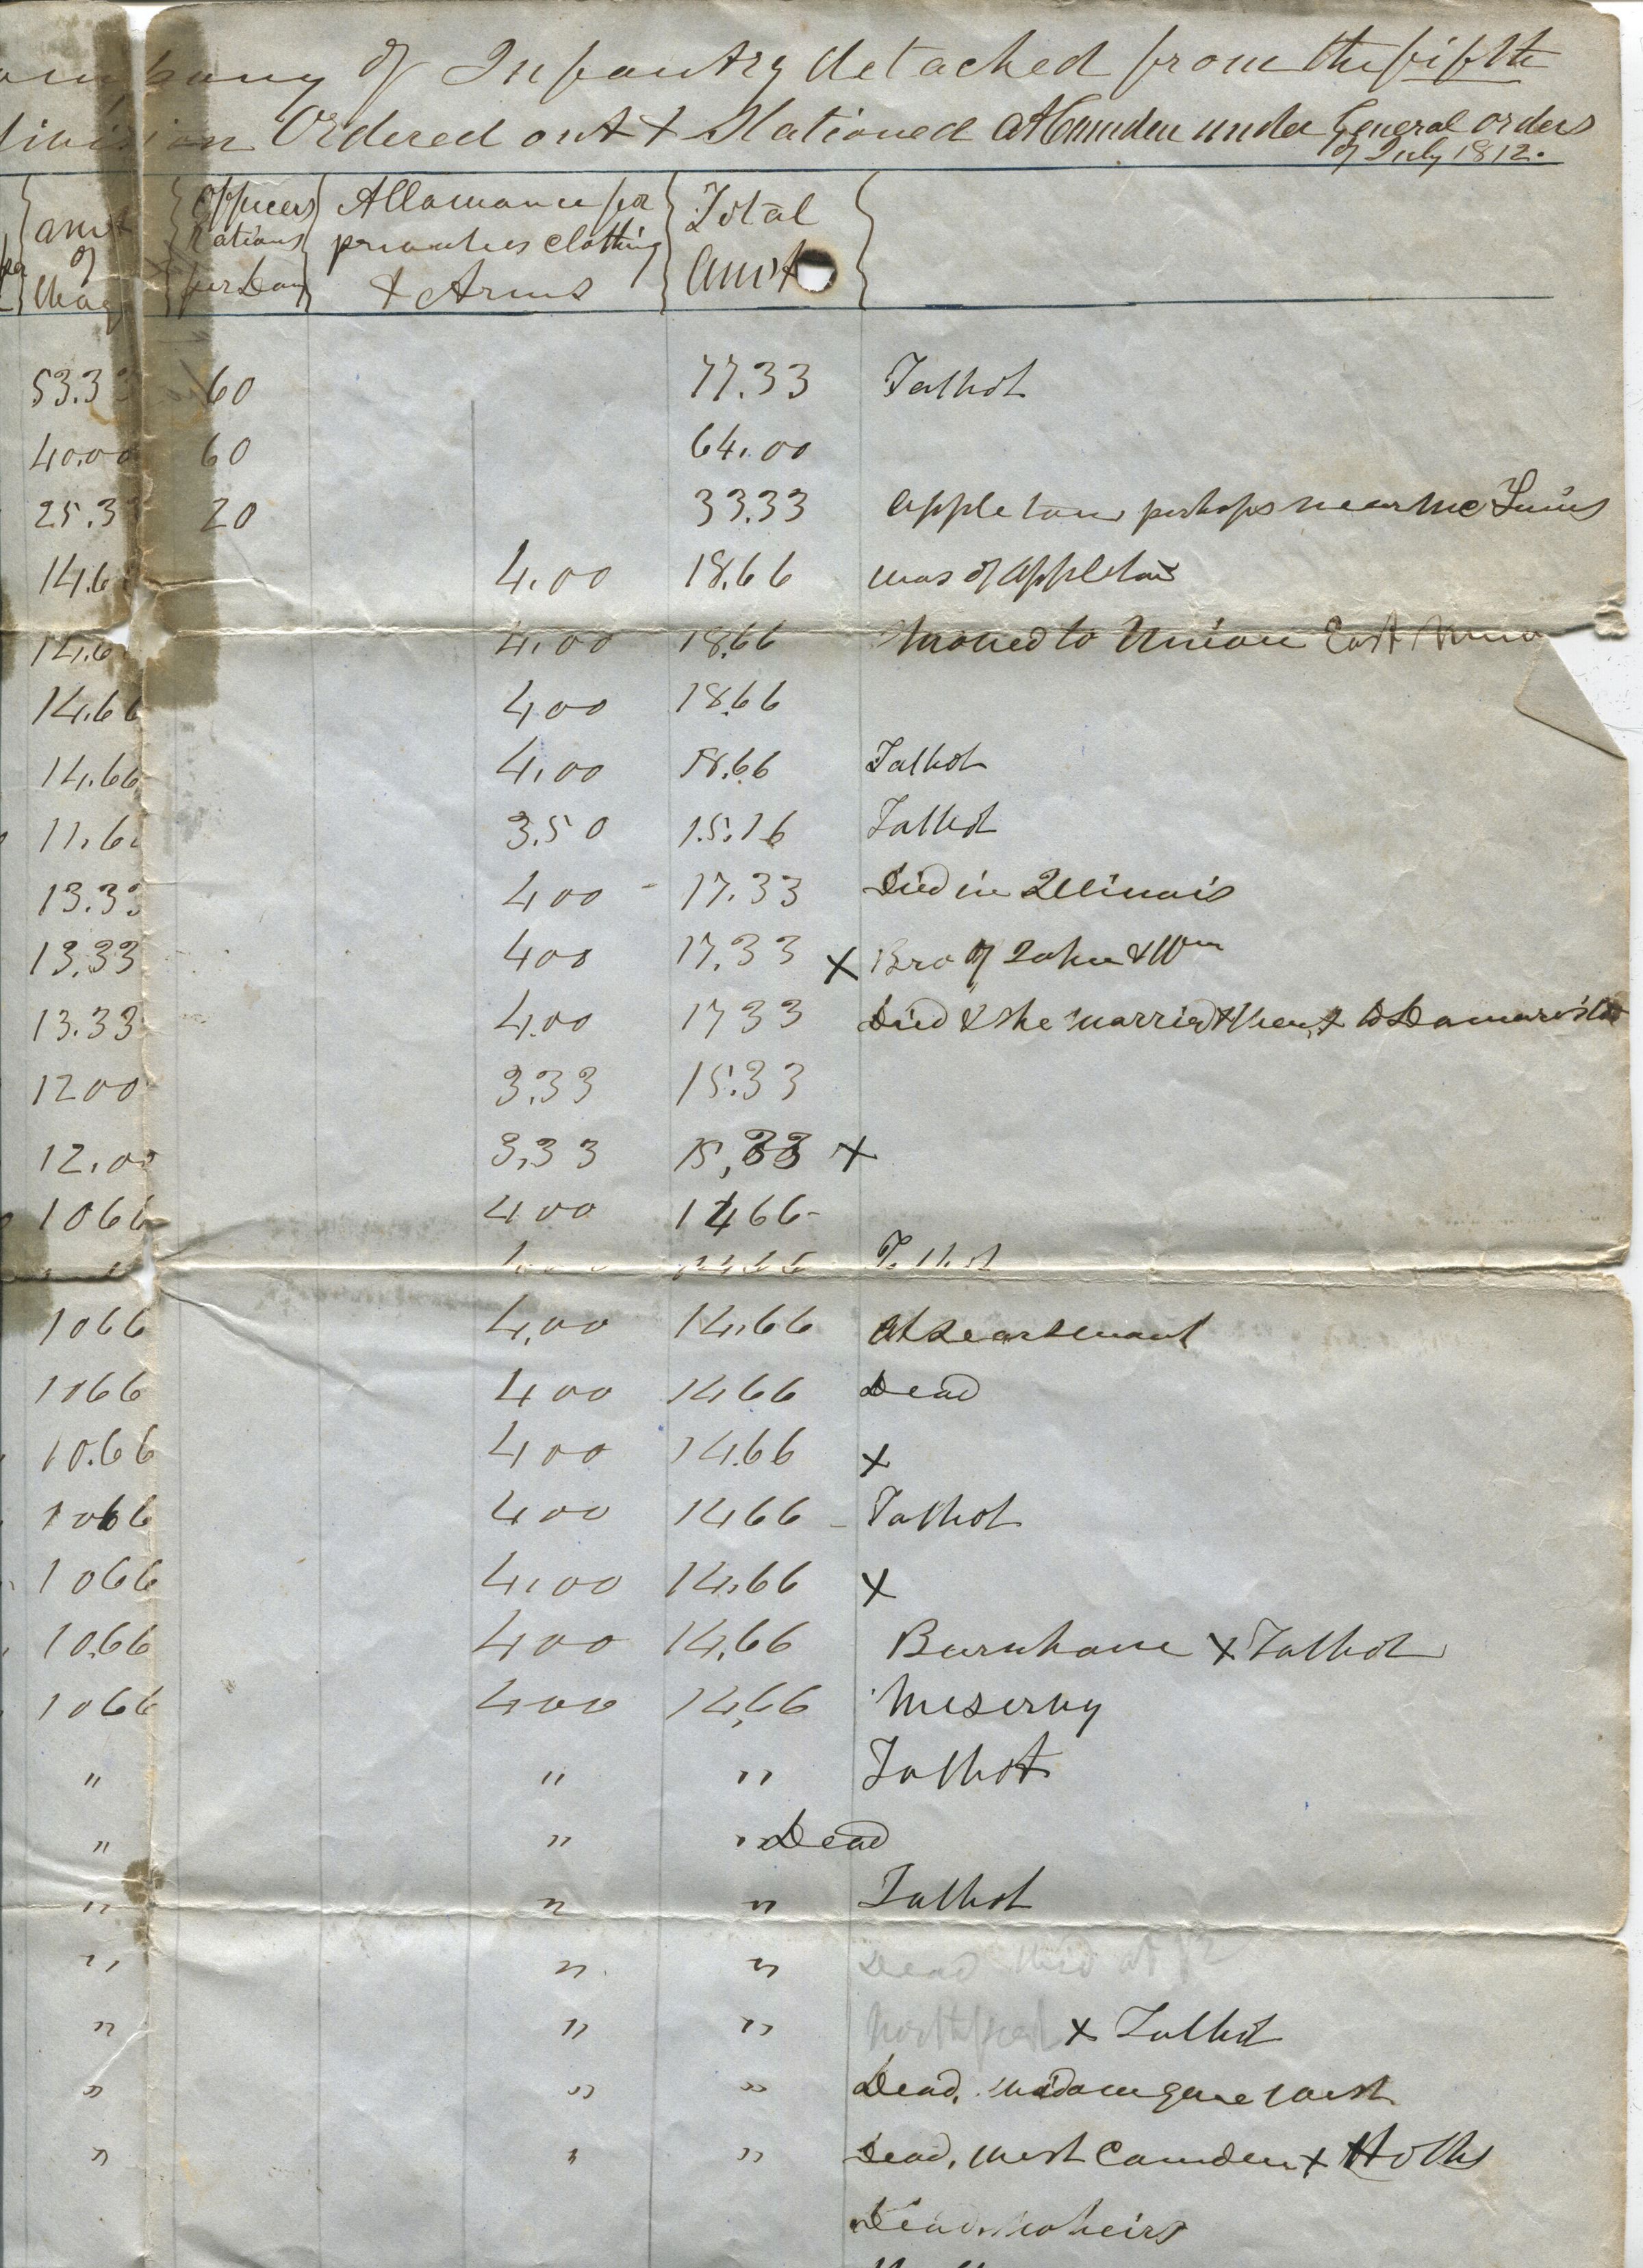 of Infantry detached from the fifth
Ordered out & Stationed at Camden under General orders
of July 1812.
amt of Wag
Officers Rations per Day
Allowance for privates clothing & Arms
Total Amt
53.3 60 77.33 Talbot
40.00 60 64.00
25.3 20 33.33 Appleton, perhaps near Mc
14.6 4.00 18.66 was of Appleton
14.6 4.00 18.66 moved to Union East
14.66 4,00 18.66
14.66 4,00 18.66 Talbot
11.6 3.50 15.16 Talbot
13.33 4 00 - 17.33 Died in Illinois
13.33 4 00 17.33 x Bro of John & Wm
13.33 4.00 17 33 Died & she married & went to
12 00 3.33 15.33
12.00 3,33 15,33 x
10 66 4 00 14 66-
Talbot
10 66 4,00 14.66 At Searsmont
10 66 4 00 14 66 Dead
10.66 4 00 14.66 x
10 66 4 00 14 66 - Talbot
10 66 4.00 14.66 x
10.66 4 00 14.66 Burnham x Talbot
10 66 4 00 14.66 Meservy
" " " Talbot
" " " Dead
" " " Talbot
" " " Dead died at
" " " Northport x Talbot
" " " Dead. widow gone west
" " " Dead, West Camden x
Dead. no heirs